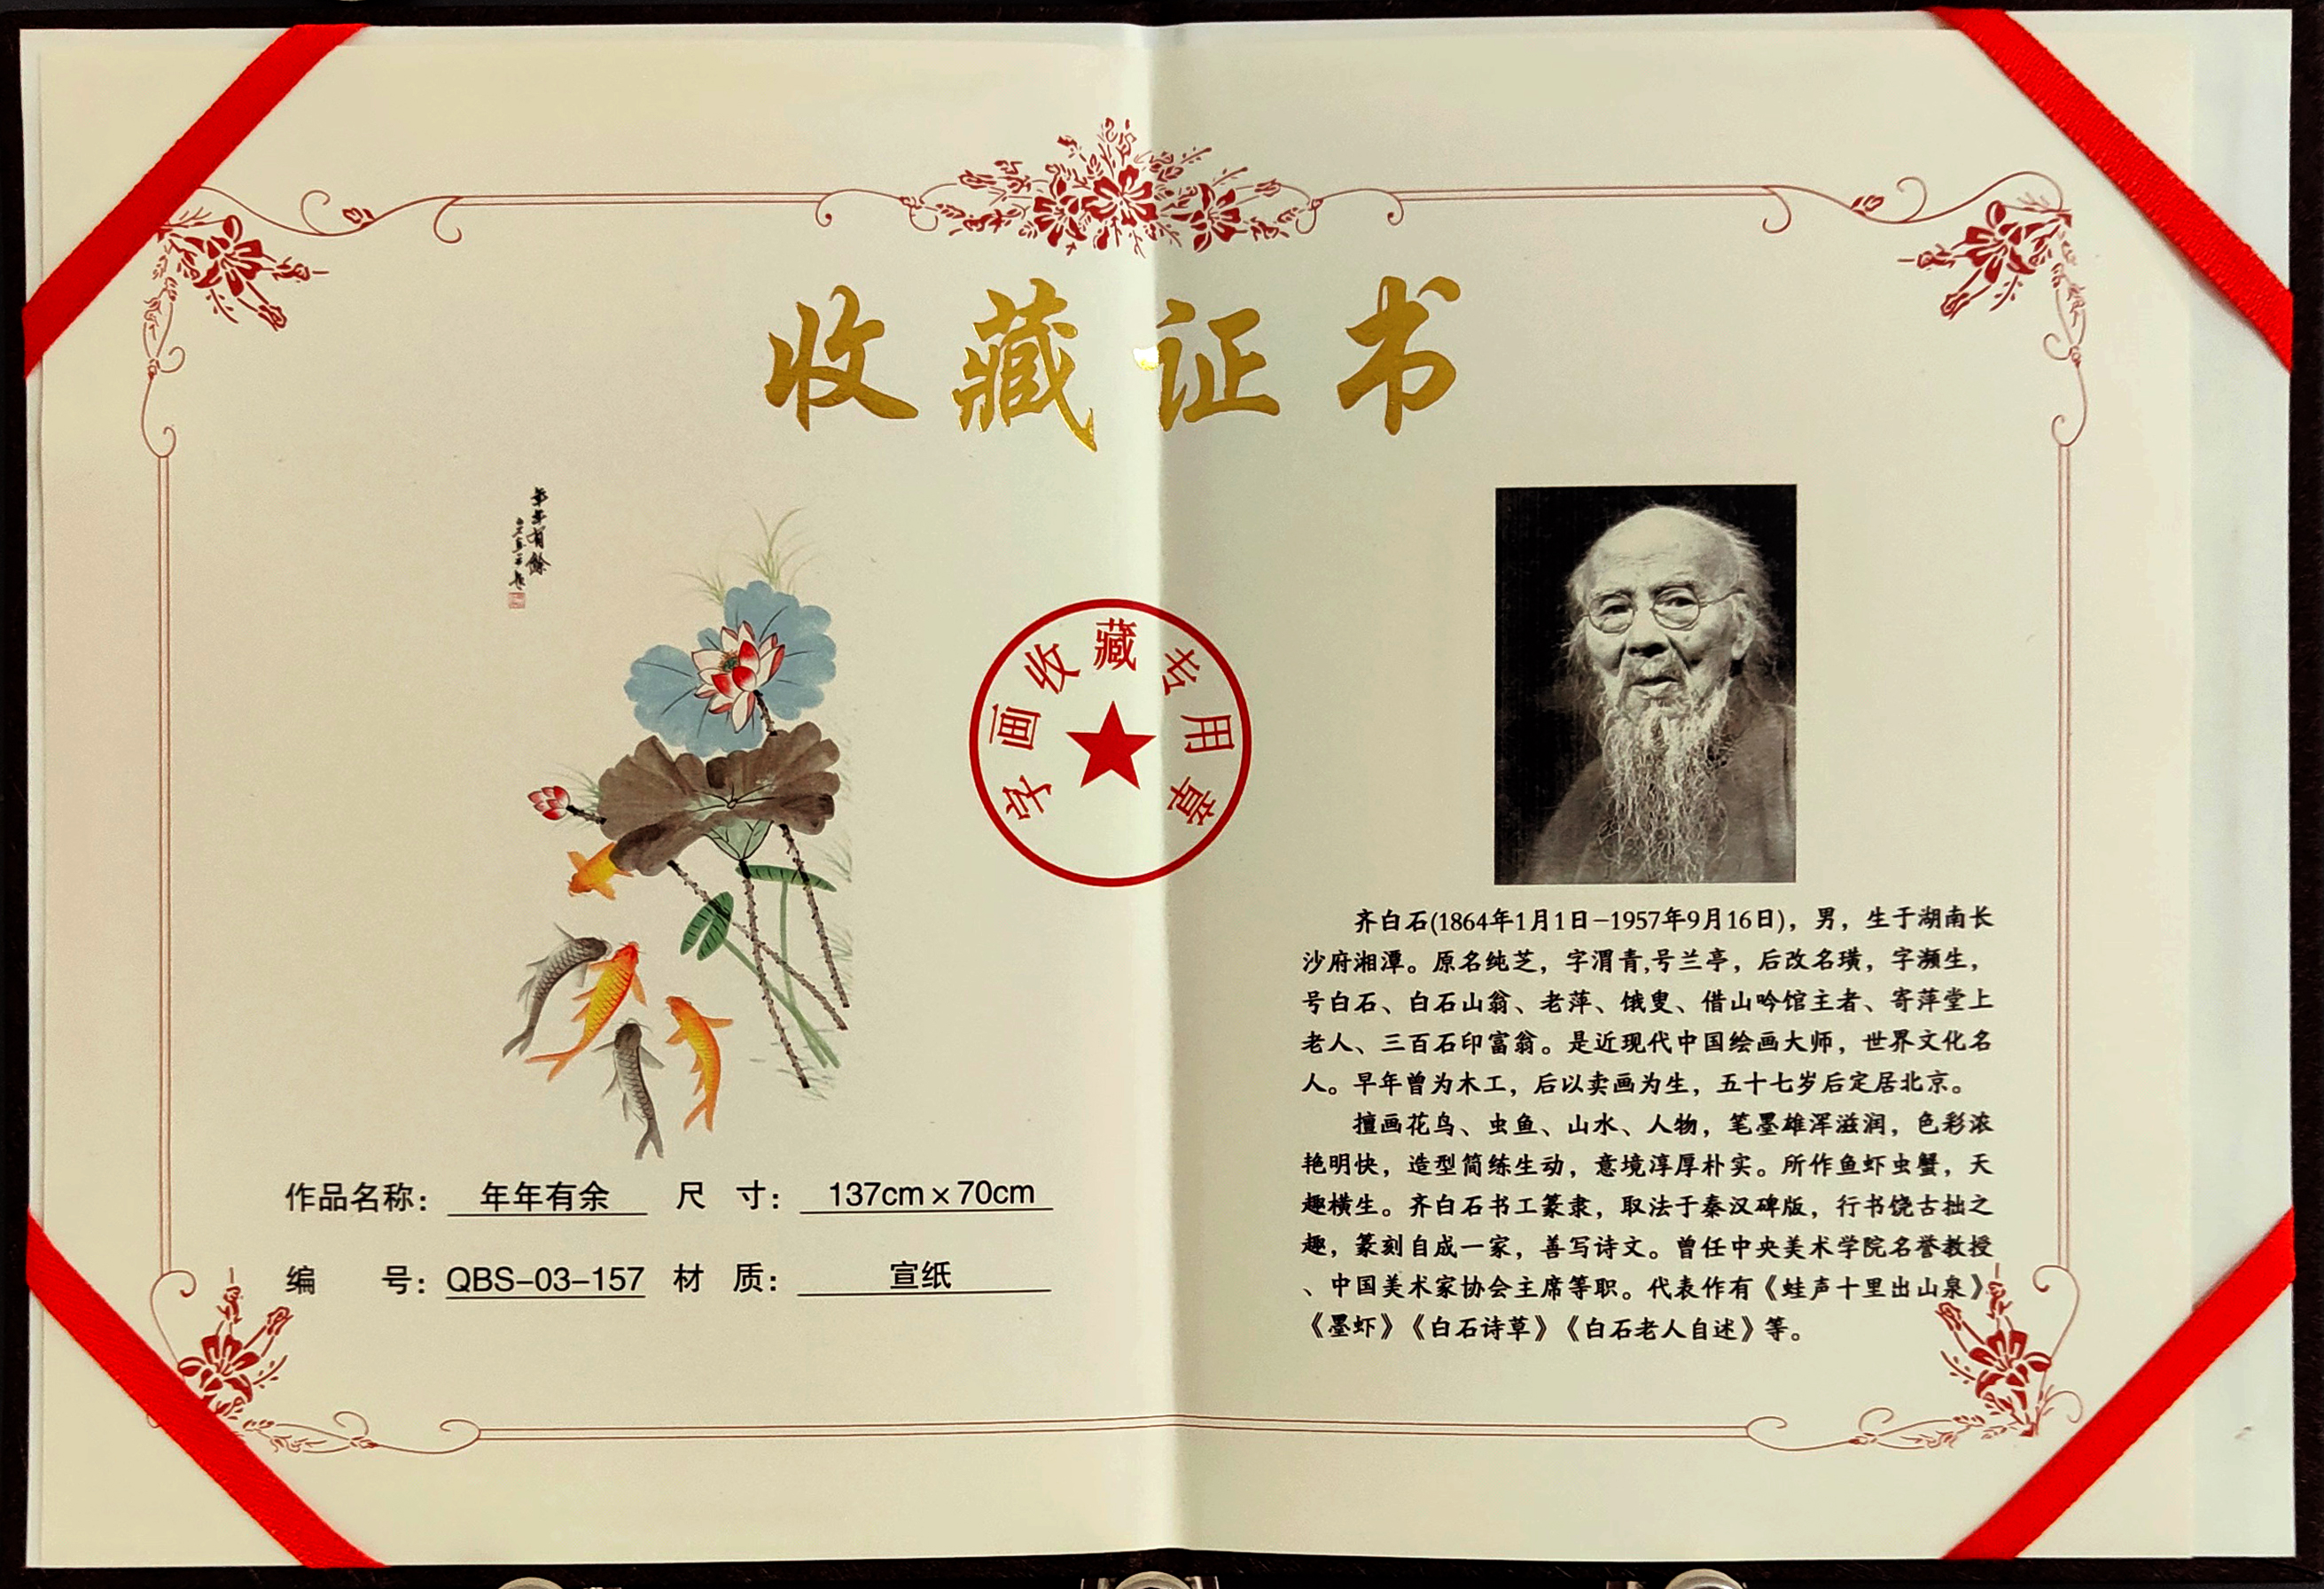 收藏证书
年年有餘
字画收藏专用章
作品名称： 年年有余 尺 寸： 137cm×70cm
编 号：QBS-03-157 材 质： 宣纸
齐白石(1864年1月1日-1957年9月16日)，男，生于湖南长
沙府湘潭。原名纯芝，字渭青,号兰亭，后改名璜，字濒生，
号白石、白石山翁、老萍、饿叟、借山吟馆主者、寄萍堂上
老人、三百石印富翁。是近现代中国绘画大师，世界文化名
人。早年曾为木工，后以卖画为生，五十七岁后定居北京。
擅画花鸟、虫鱼、山水、人物，笔墨雄浑滋润，色彩浓
艳明快，造型简练生动，意境淳厚朴实。所作鱼虾虫蟹，天
趣横生。齐白石书工篆隶，取法于秦汉碑版，行书饶古拙之
趣，篆刻自成一家，善写诗文。曾任中央美术学院名誉教授
、中国美术家协会主席等职。代表作有《蛙声十里出山泉》
《墨虾》《白石诗草》《白石老人自述》等。